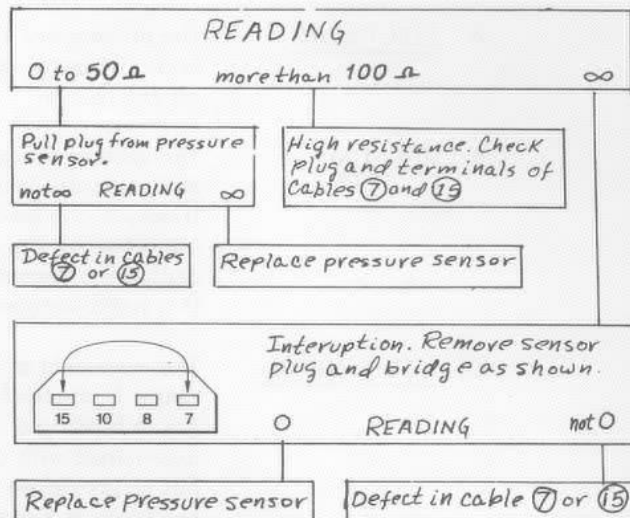 READING
0 to 50 Ω more than 100 Ω ∞
Pull plug from pressure
sensor.
not ∞ READING ∞
High resistance. Check
plug and terminals of
Cables ⑦ and ⑮
Defect in cables
⑦ or ⑮
Replace pressure sensor
Interuption. Remove sensor
plug and bridge as shown.
15 10 8 7
0 READING not 0
Replace pressure sensor
Defect in cable ⑦ or ⑮